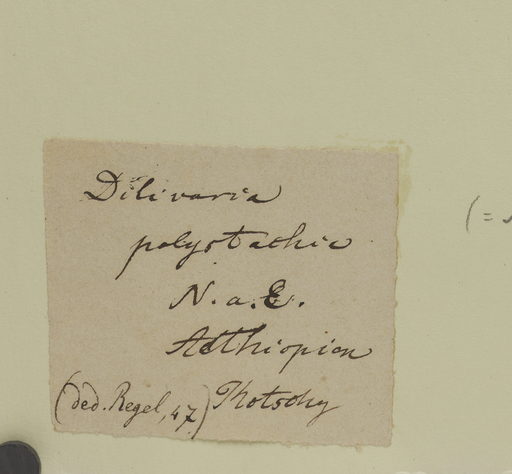 Dilivaria
polystachia
N. a. E.
Aethiopien
(ded. Regel, 47) Kotschy
(=